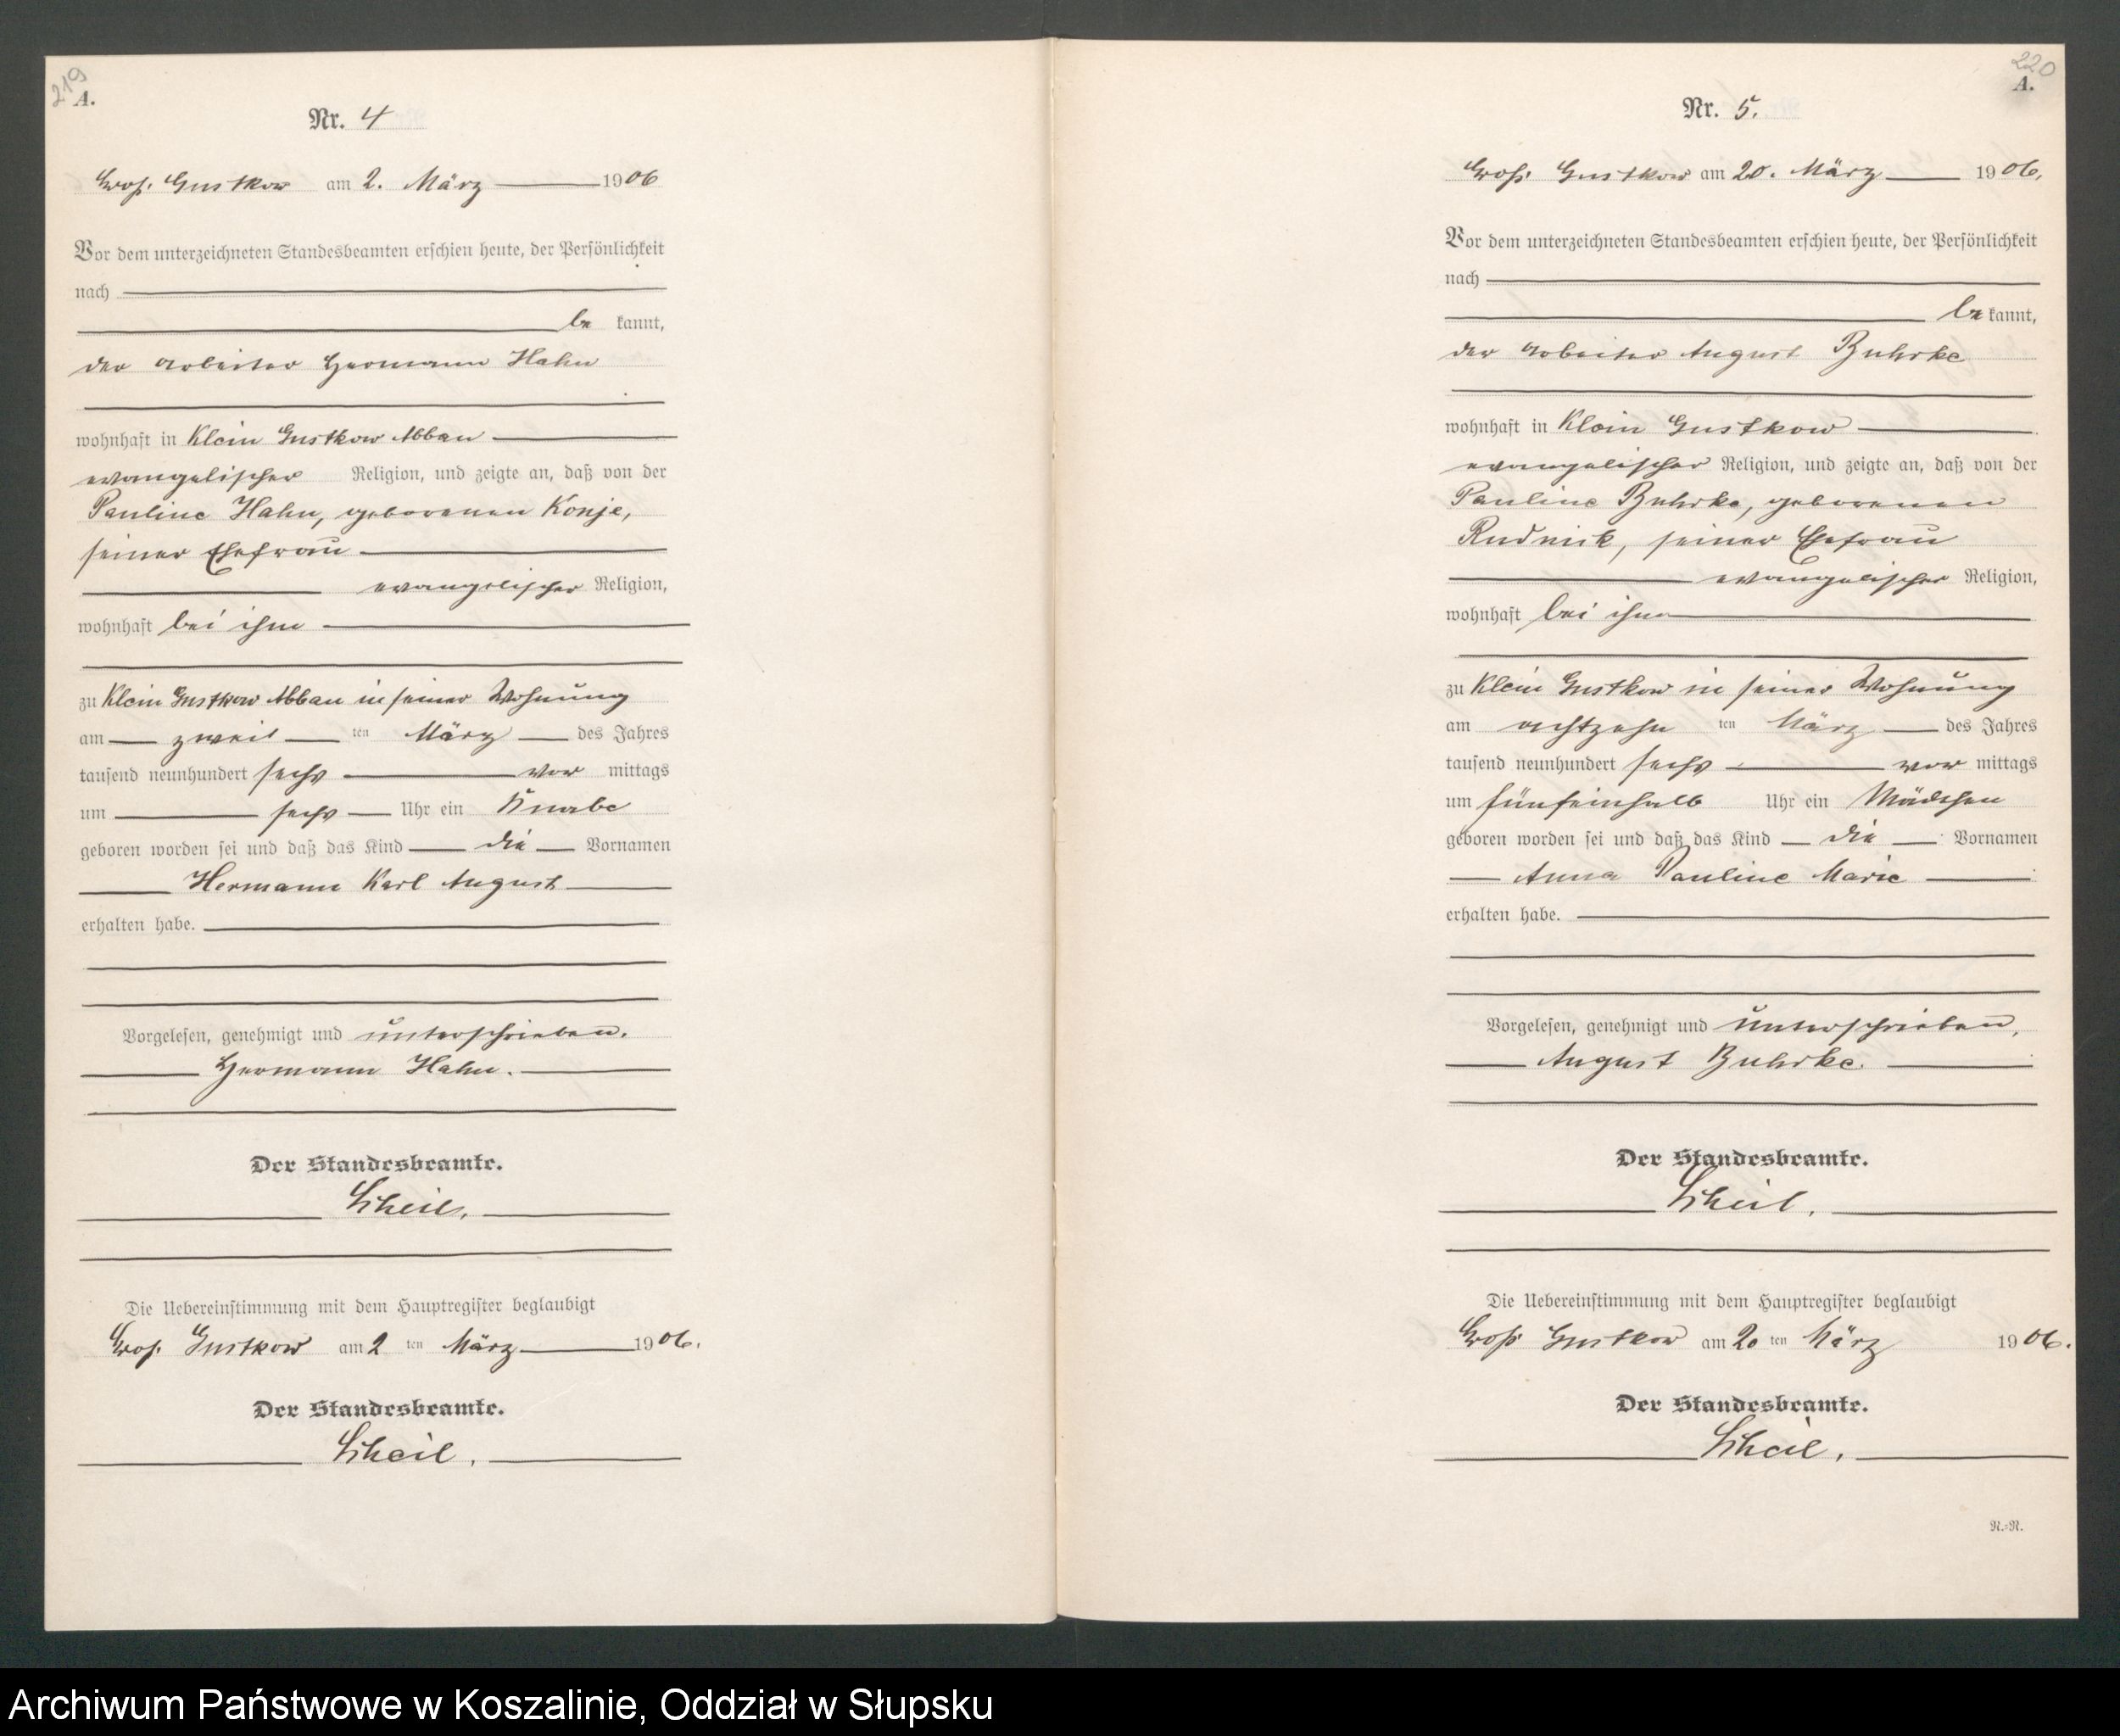 219
A.
Nr. 4
Groß Gustkow am 2. März 1906
Vor dem unterzeichneten Standesbeamten erschien heute, der Persönlichkeit
nach
be kannt,
der Arbeiter Hermann Hahn
wohnhaft in Klein Gustkow Abbau
evangelischer Religion, und zeigte an, daß von der
Pauline Hahn, geborenen Konje,
seiner Ehefrau
evangelischer Religion,
wohnhaft bei ihm
zu Klein Gustkow Abbau in seiner Wohnung
am zweit ten März des Jahres
tausend neunhundert sechs vor mittags
um sechs Uhr ein Knabe
geboren worden sei und daß das Kind die Vornamen
Hermann Karl August
erhalten habe.
Vorgelesen, genehmigt und unterschrieben.
Hermann Hahn.
Der Standesbeamte.
Scheil.
Die Uebereinstimmung mit dem Hauptregister beglaubigt
Groß Gustkow am 2 ten März 1906.
Der Standesbeamte.
Scheil.
220
A.
Nr. 5.
Groß Gustkow am 20. März 1906.
Vor dem unterzeichneten Standesbeamten erschien heute, der Persönlichkeit
nach
be kannt,
der Arbeiter August Buhrke
wohnhaft in Klein Gustkow
evangelischer Religion, und zeigte an, daß von der
Pauline Buhrke, geborenen
Rudnick, seiner Ehefrau
evangelischer Religion,
wohnhaft bei ihm
zu Klein Gustkow in seiner Wohnung
am achtzehn ten März des Jahres
tausend neunhundert sechs vor mittags
um fünfeinhalb Uhr ein Mädchen
geboren worden sei und daß das Kind die Vornamen
Anna Pauline Marie
erhalten habe.
Vorgelesen, genehmigt und unterschrieben.
August Buhrke.
Der Standesbeamte.
Scheil.
Die Uebereinstimmung mit dem Hauptregister beglaubigt
Groß Gustkow am 20 ten März 1906.
Der Standesbeamte.
Scheil.
N.=N.
Archiwum Państwowe w Koszalinie, Oddział w Słupsku